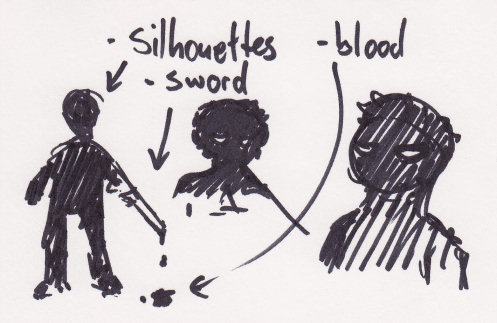 - Silhouettes
- sword
- blood